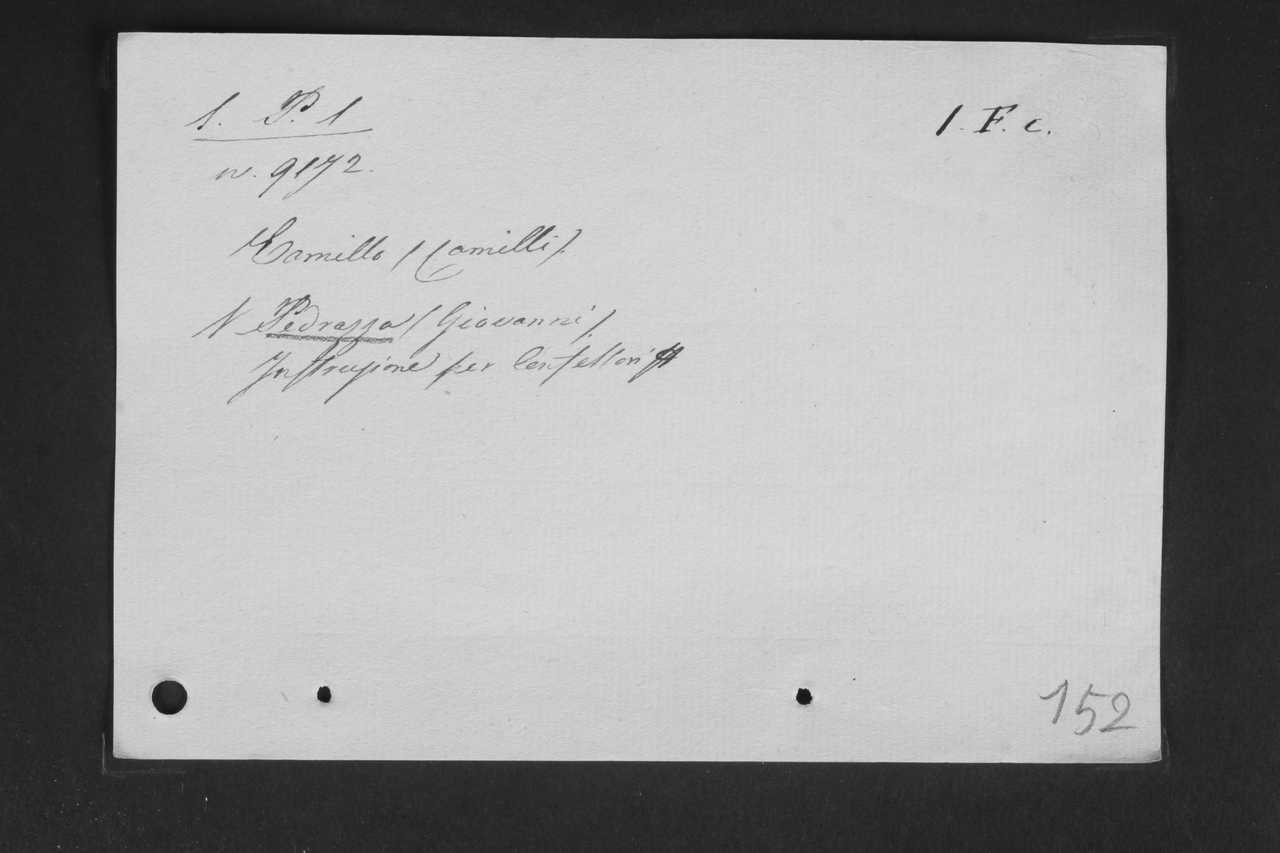 1. P. 1
1. F. c.
n. 9172.
Camillo (Camilli).
V Pedrazza (Giovanni)
Instruzione per Confessori
152